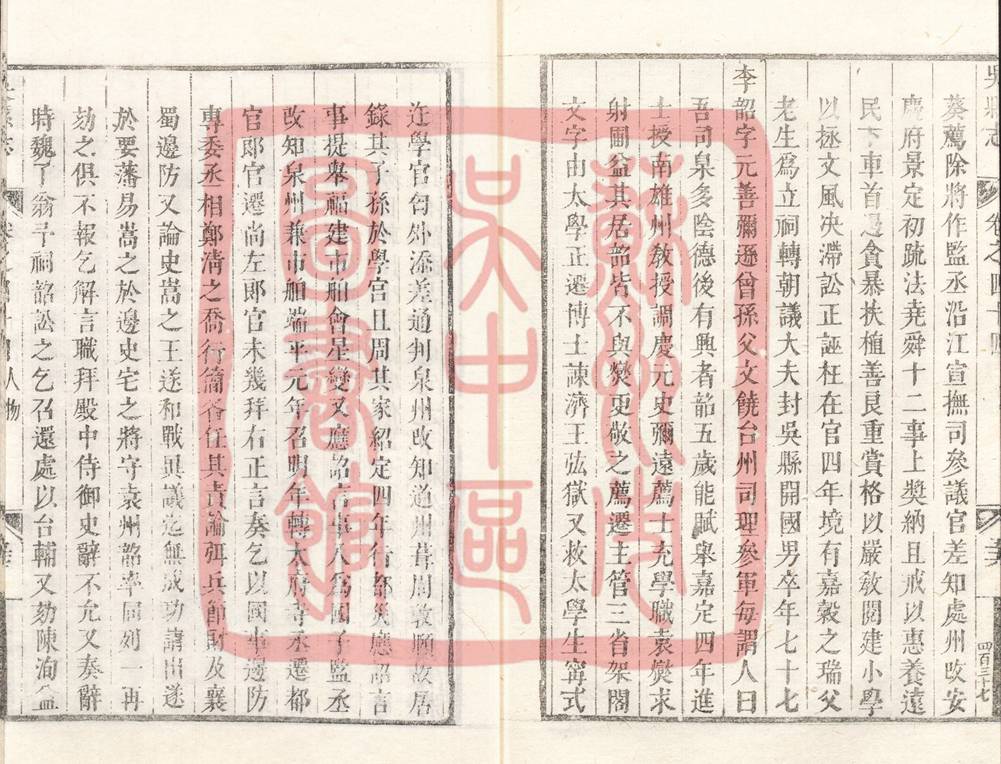 吳縣志
卷之四十四
四百三十七
葵薦除將作監丞沿江宣撫司參議官差知處州改安
慶府景定初疏法堯舜十二事上奬納且戒以惠養遠
民下車首邊貪暴扶植善良重賞格以嚴教閱建小學
以拯文風決滯訟正誣枉在官四年境有嘉穀之瑞父
老生爲立祠轉朝議大夫封吳縣開國男卒年七十七
李韶字元善彌遜曾孫父文饒台州司理參軍每謂人曰
吾司臬多陰德後有興者韶五歲能賦舉嘉定四年進
士授南雄州敎授調慶元史彌遠薦士充學職袁燮求
射圃益其居韶皆不與燮更敬之薦遷主管三省架閣
文字由太學正遷博士諫濟王竑獄又救太學生寗式
迕學官匄外添差通判泉州改知道州葺周敦頤故居
錄其子孫於學官且周其家紹定四年行都災應詔言
事提舉福建市舶會星變又應詔言事入爲國子監丞
改知泉州兼市舶端平元年召明年轉太府寺丞遷都
官郎官遷尚左郎官未幾拜右正言奏乞以國事邊防
專委丞相鄭清之喬行簡各任其責論弭兵節財及襄
蜀邊防又論史嵩之王遂和戰異議迄無成功請出遂
於要藩易嵩之於邊史宅之將守袁州韶率同列一再
劾之俱不報乞解言職拜殿中侍御史辭不允又奏辭
時魏了翁予祠韶訟之乞召還處以台輔又劾陳洵益
人物
蘇州市
吳中區
圖書館